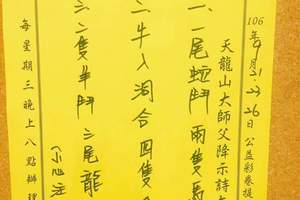 106年9月21.23.26日公益彩卷提
天龍山大師父降示詩
一、一尾蛇鬥兩隻馬
二牛入洞合四隻
三、二隻羊鬥三尾龍
(小心注
每星期三晚上八點辦理